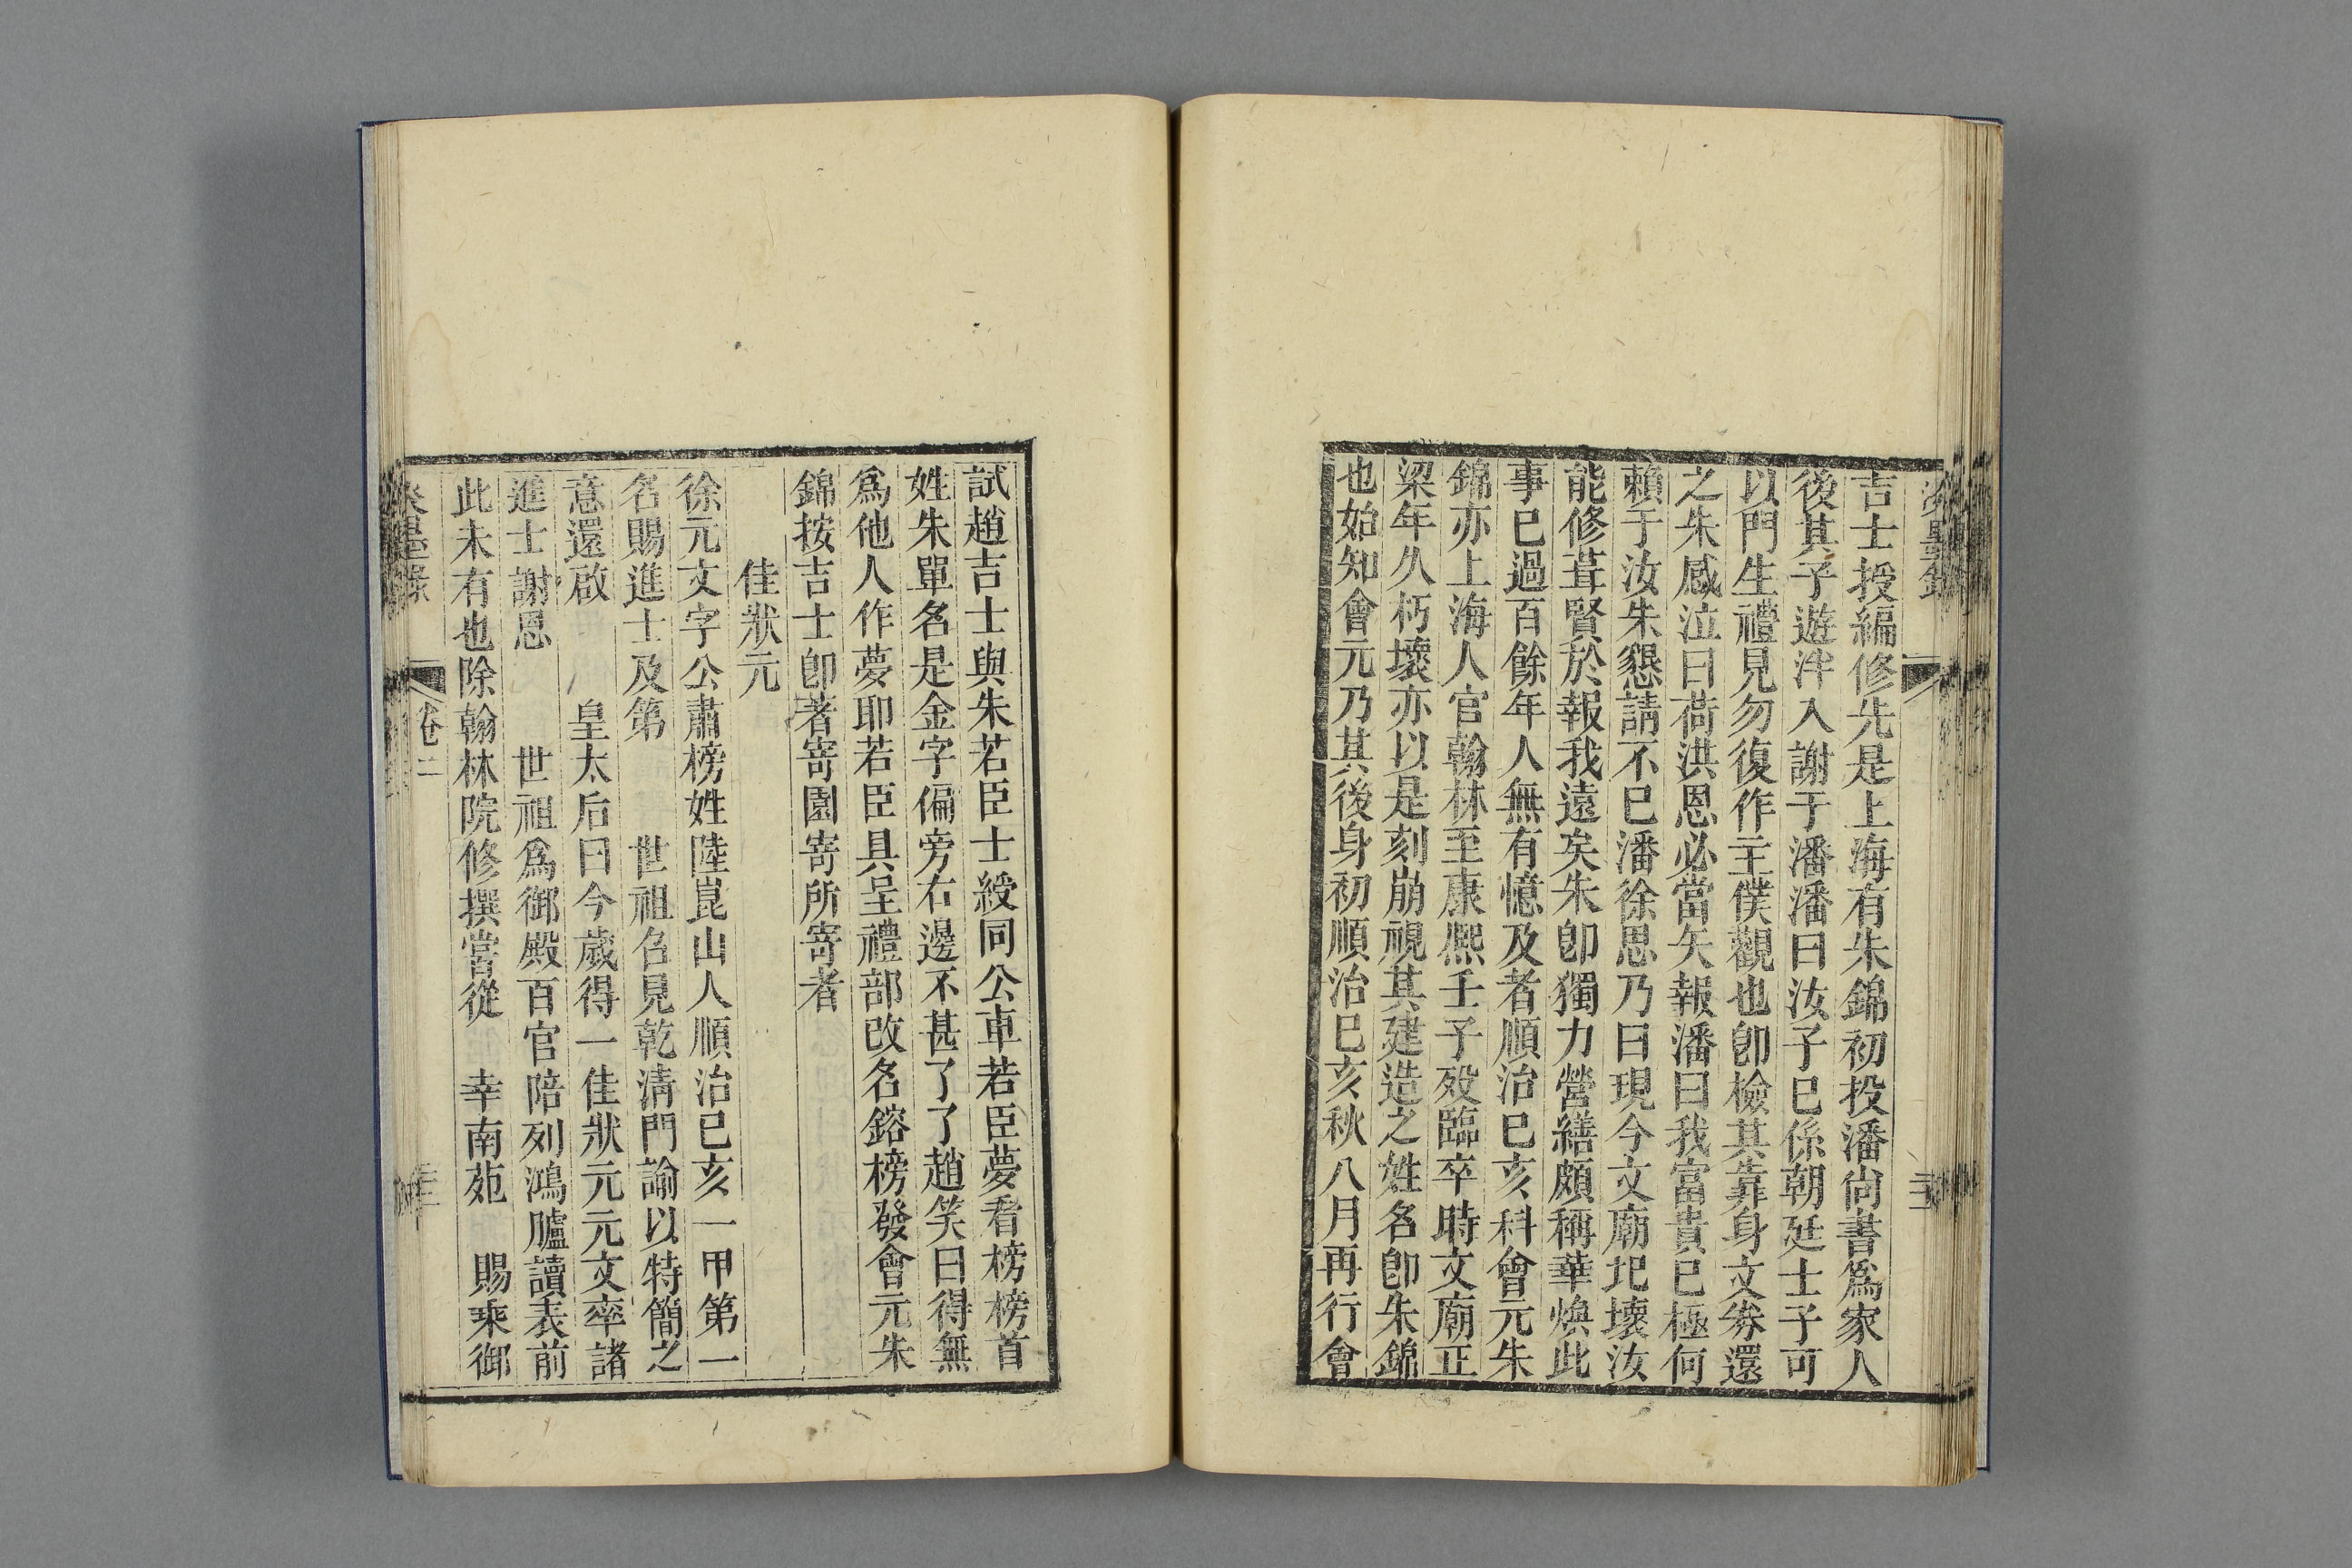 吉士授編修先是上海有朱錦初投潘尙書爲家人
後其子遊泮入謝于潘潘曰汝子已係朝廷士子可
以門生禮見勿復作主僕觀也卽檢其靠身文券還
之朱感泣曰荷洪恩必當矢報潘曰我富貴已極何
賴于汝朱懇請不已潘徐思乃曰現今文廟圮壞汝
能修葺賢於報我遠矣朱卽獨力營繕頗稱華煥此
事已過百餘年人無有憶及者順治已亥科會元朱
錦亦上海人官翰林至康熙壬子歿臨卒時文廟正
梁年久朽壞亦以是刻崩視其建造之姓名卽朱錦
也始知會元乃其後身初順治已亥秋八月再行會
試趙吉士與朱若臣士綬同公車若臣夢看榜榜首
姓朱單名是金字偏旁右邊不甚了了趙笑曰得無
爲他人作夢耶若臣具呈禮部改名鎔榜發會元朱
錦按吉士卽著寄園寄所寄者
佳狀元
徐元文字公肅榜姓陸崑山人順治已亥一甲第一
名賜進士及第 世祖召見乾清門諭以特簡之
意還啟 皇太后曰今歲得一佳狀元元文率諸
進士謝恩 世祖爲御殿百官陪列鴻臚讀表前
此未有也除翰林院修撰嘗從 幸南苑 賜乘御
卷二